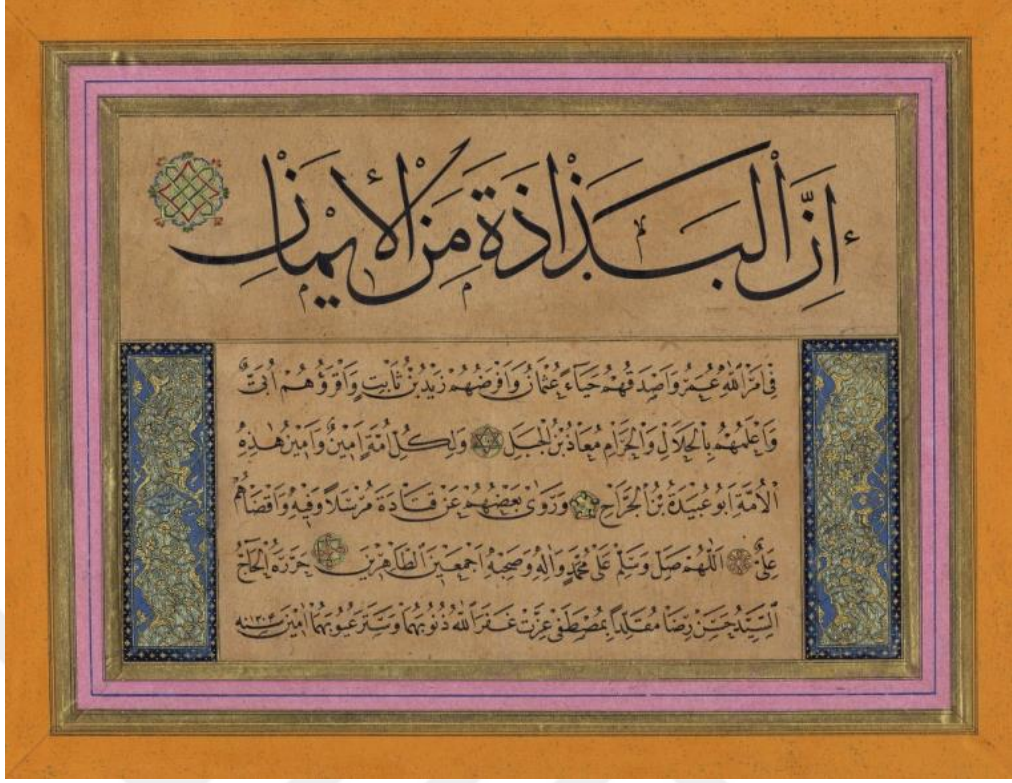 اِنَّ الْبَذَاذَةَ مِنَ الْاِيمَانِ
فِى اَمْرِ اللّٰهِ عُمَرُ وَاَصْدَقُهُمْ حَيَاءً عُثْمَانُ وَاَفْرَضُهُمْ زَيْدُ بْنُ ثَابِتٍ وَاَقْرَؤُهُمْ اُبَىٌّ
وَاَعْلَمُهُمْ بِالْحَلَالِ وَالْحَرَامِ مُعَاذُ بْنُ الْجَبَلِ وَلِكُلِّ اُمَّةٍ اَمِينٌ وَاَمِينُ هٰذِهِ
الْاُمَّةِ اَبُو عُبَيْدَةَ بْنُ الْجَرَّاحِ وَرَوٰى بَعْضُهُمْ عَنْ قَتَادَةَ مُرْسَلًا وَفِيهِ وَاَقْضَاهُمْ
عَلِىٌّ اَللّٰهُمَّ صَلِّ وَسَلِّمْ عَلٰى مُحَمَّدٍ وَاٰلِهِ وَصَحْبِهِ اَجْمَعِينَ الطَّاهِرِينَ حَرَّرَهُ الْحَاجُّ
السَّيِّدُ حَسَن رِضَا مُقَلِّداً بِمُصْطَفٰى عِزَّتْ غَفَرَ اللّٰهُ ذُنُوبَهُمَا وَسَتَرَ عُيُوبَهُمَا اٰمِينَ سنه ١٣٠٤